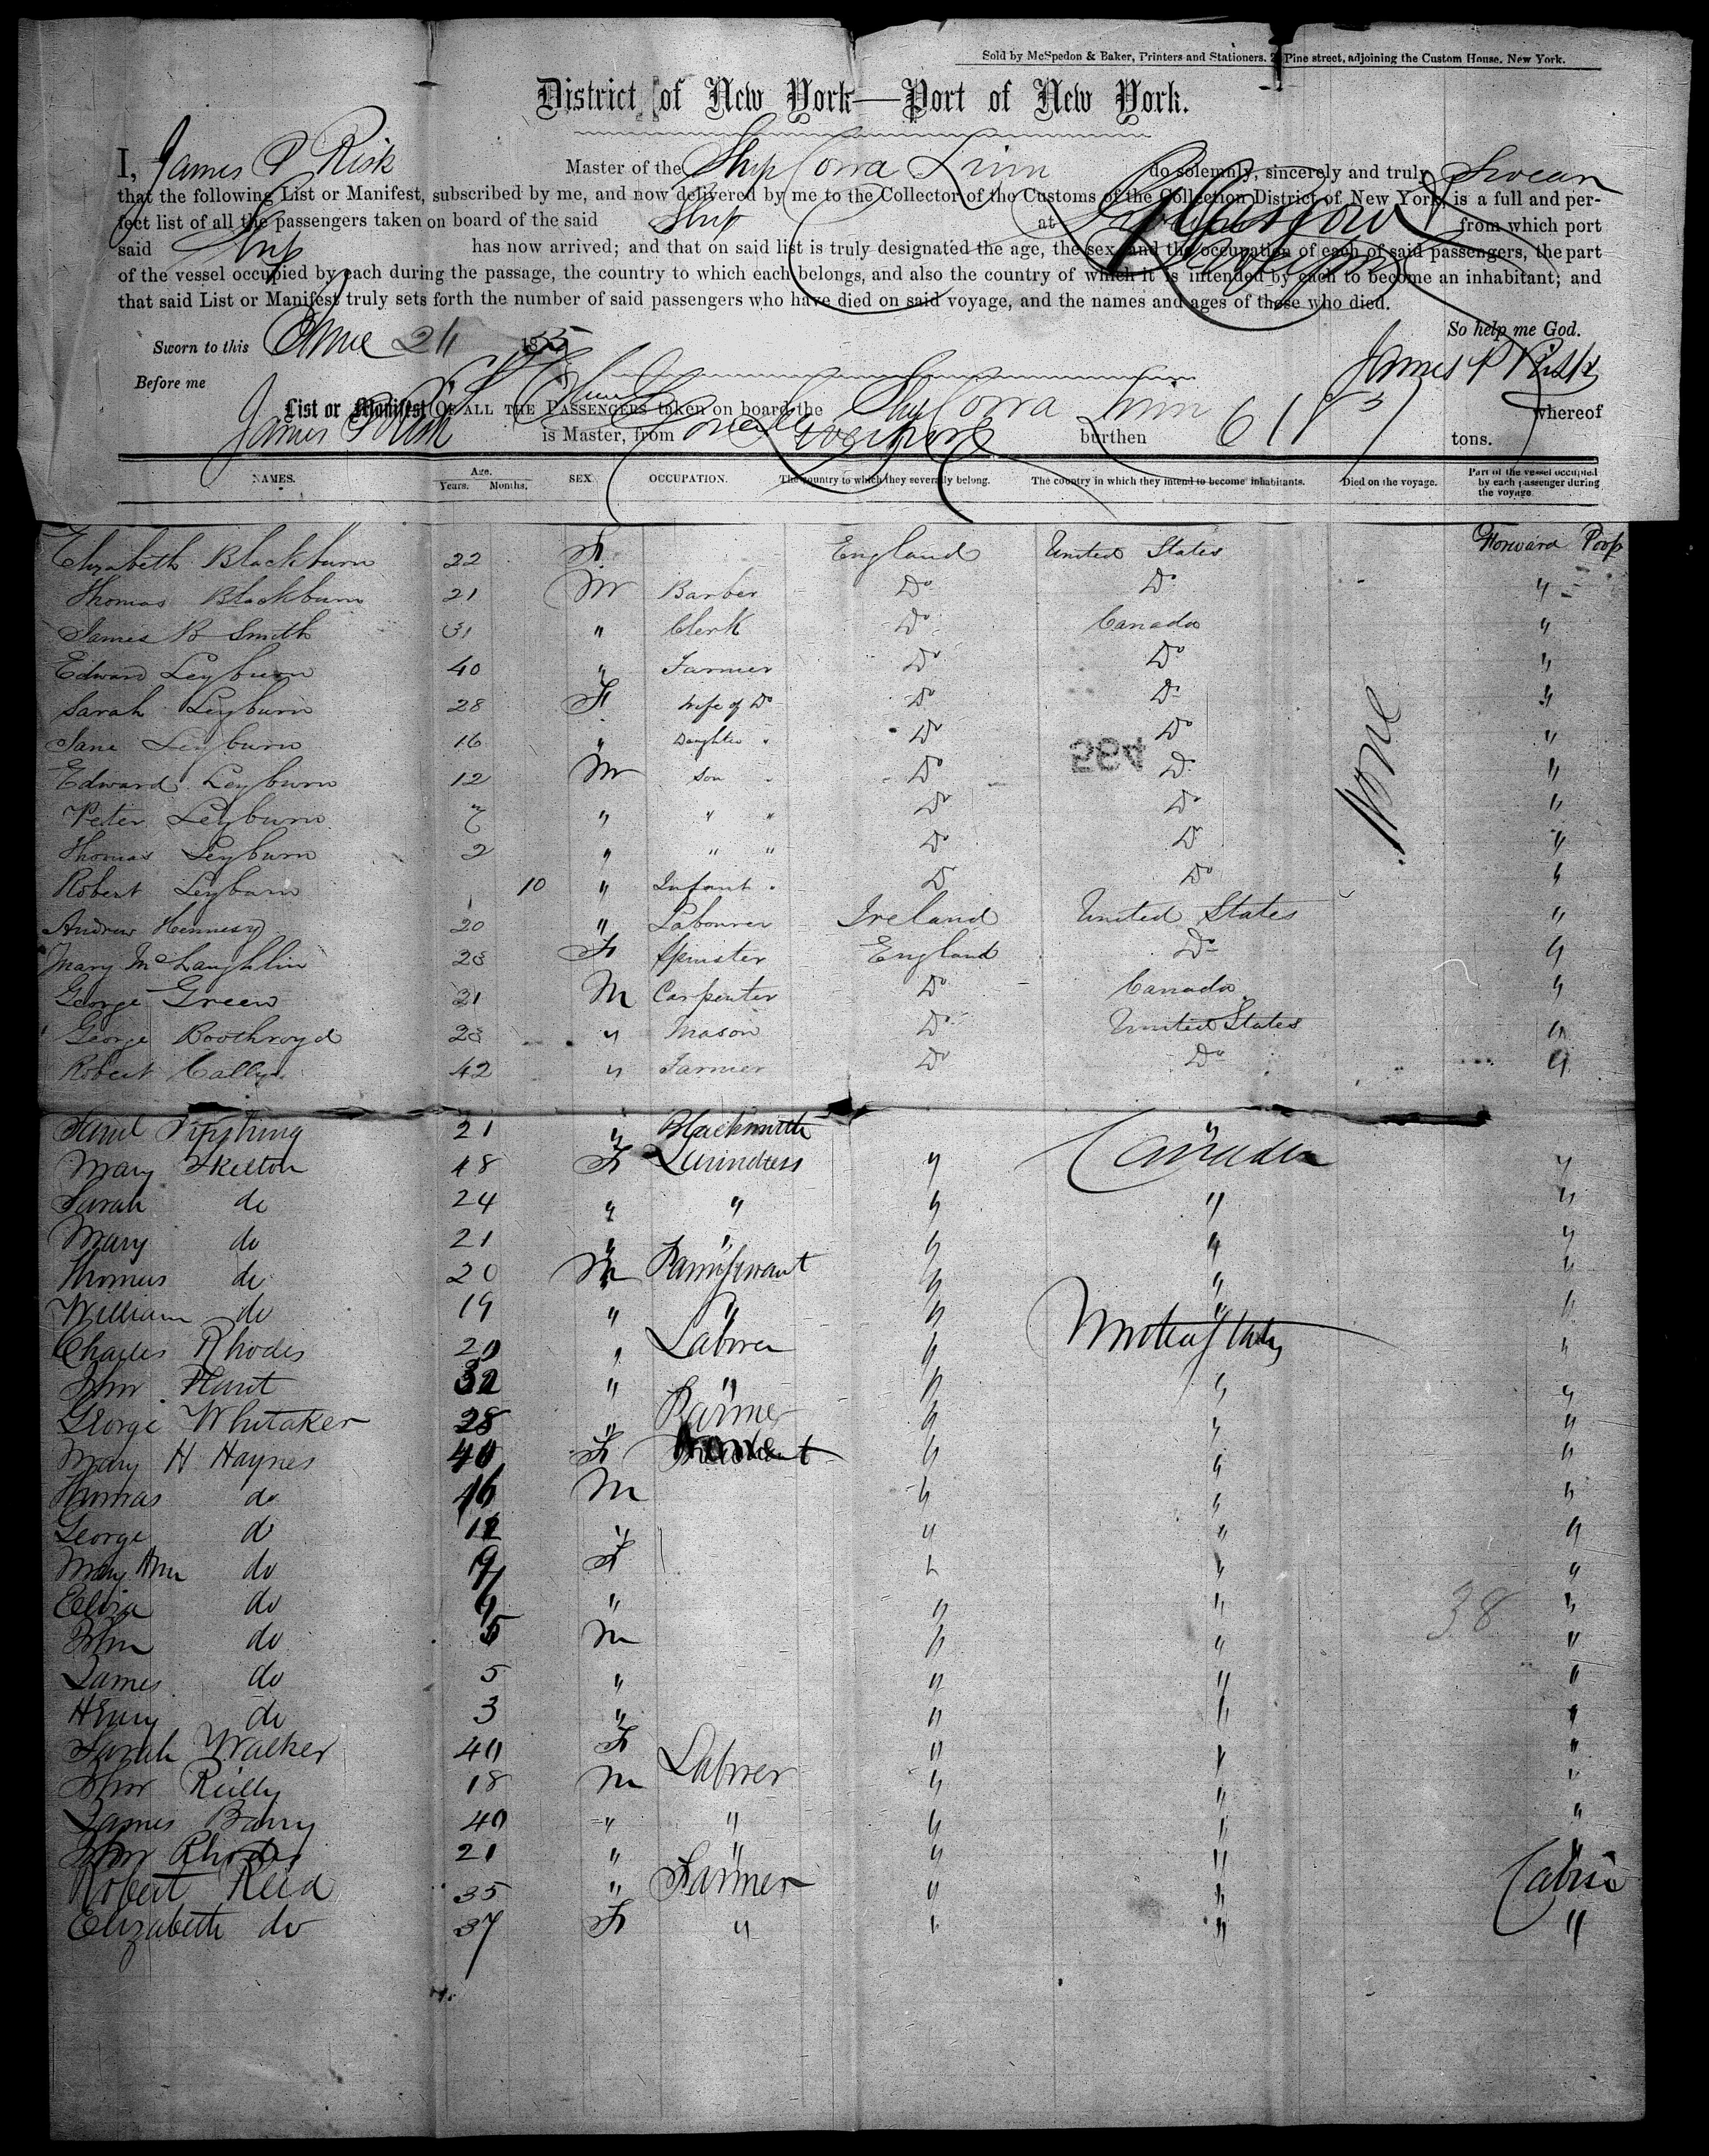 Sold by McSpedon & Baker, Printers and Stationers. Pine street, adjoining the Custom House, New York.
District of New York—Port of New York.
I, James P Risk Master of the Ship Corra Linn do solemnly, sincerely and truly Swear
that the following List or Manifest, subscribed by me, and now delivered by me to the Collector of the Customs of the Collection District of New York, is a full and per-
fect list of all the passengers taken on board of the said Ship at from which port
said Ship has now arrived; and that on said list is truly designated the age, the sex, and the occupation of each of said passengers, the part
of the vessel occupied by each during the passage, the country to which each belongs, and also the country of which it is intended by each to become an inhabitant; and
that said List or Manifest truly sets forth the number of said passengers who have died on said voyage, and the names and ages of those who died.
So help me God.
Sworn to this June 24 185
James P Risk
Before me
List or Manifest OF ALL THE PASSENGERS taken on board the Ship Corra Linn whereof
James P Risk is Master, from burthen 618 tons.
NAMES. Age. Years. Months. SEX OCCUPATION. The country to which they severally belong. The country in which they intend to become inhabitants. Died on the voyage. Part of the vessel occupied by each passenger during the voyage
Elizabeth Blackburn 22 F England United States Forward Poop
Thomas Blackburn 21 M Barber Do Do "
James B Smith 31 " Clerk Do Canada "
Edward Leyburn 40 " Farmer Do Do "
Sarah Leyburn 28 F Wife of Do Do Do "
Jane Leyburn 16 " Daughter " Do Do "
594
Edward Leyburn 12 M Son " Do Do "
None
Peter Leyburn " " " Do Do "
Thomas Leyburn 2 " " " Do Do "
Robert Leyburn 10 " Infant " Do Do "
Andrew Hennesy 20 " Labourer Ireland United States "
Mary McLaughlin 28 F Spinster England Do "
George Green 21 M Carpenter Do Canada "
George Boothroyd 28 " Mason Do United States "
Robert Cally 42 " Farmer Do Do "
21 " Blacksmith "
Mary Skelton 48 F Laundress " Canada "
Sarah do 24 " " " " "
Mary do 21 " " " " "
Thomas do 20 M " " "
William do 19 " " " " "
Charles Rhodes 20 " Laborer " United States "
John Hunt 32 " " " " "
George Whitaker 28 " Farmer " " "
Mary H Haynes 40 F " " "
Thomas do 16 M " " "
George do 12 " " " "
Mary Ann do 9 F " " "
Eliza do " " " "
38
John do 5 M " " "
James do 5 " " " "
Henry do 3 " " " "
Sarah Walker 40 F " " "
John Reilly 18 M Laborer " " "
James Barry 40 " " " " "
John Rhodes 21 " " " " "
Robert Reid 35 " Farmer " " Cabin
Elizabeth do 37 F " " " "